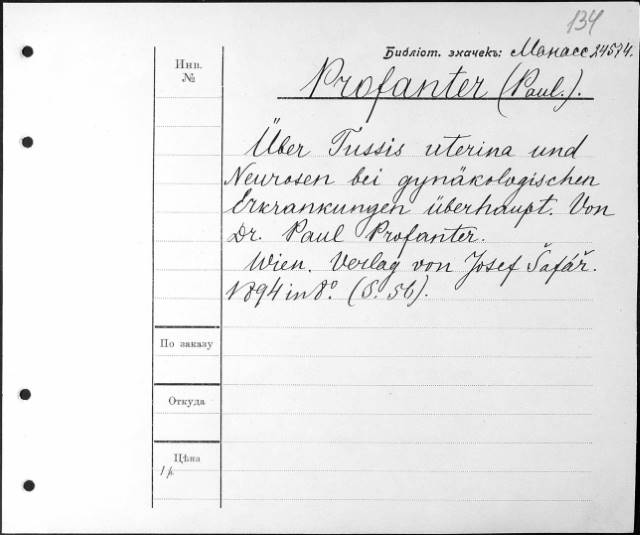 134
Библіот. значекъ: Манасс 24574.
Инв.
№
Profanter (Paul.).
Über Tussis uterina und
Neurosen bei gynäkologischen
Erkrankungen überhaupt. Von
Dr. Paul Profanter.
Wien. Verlag von Josef Šafář.
1894 in 8º. (S. 56).
По заказу
Откуда
Цѣна
1 р